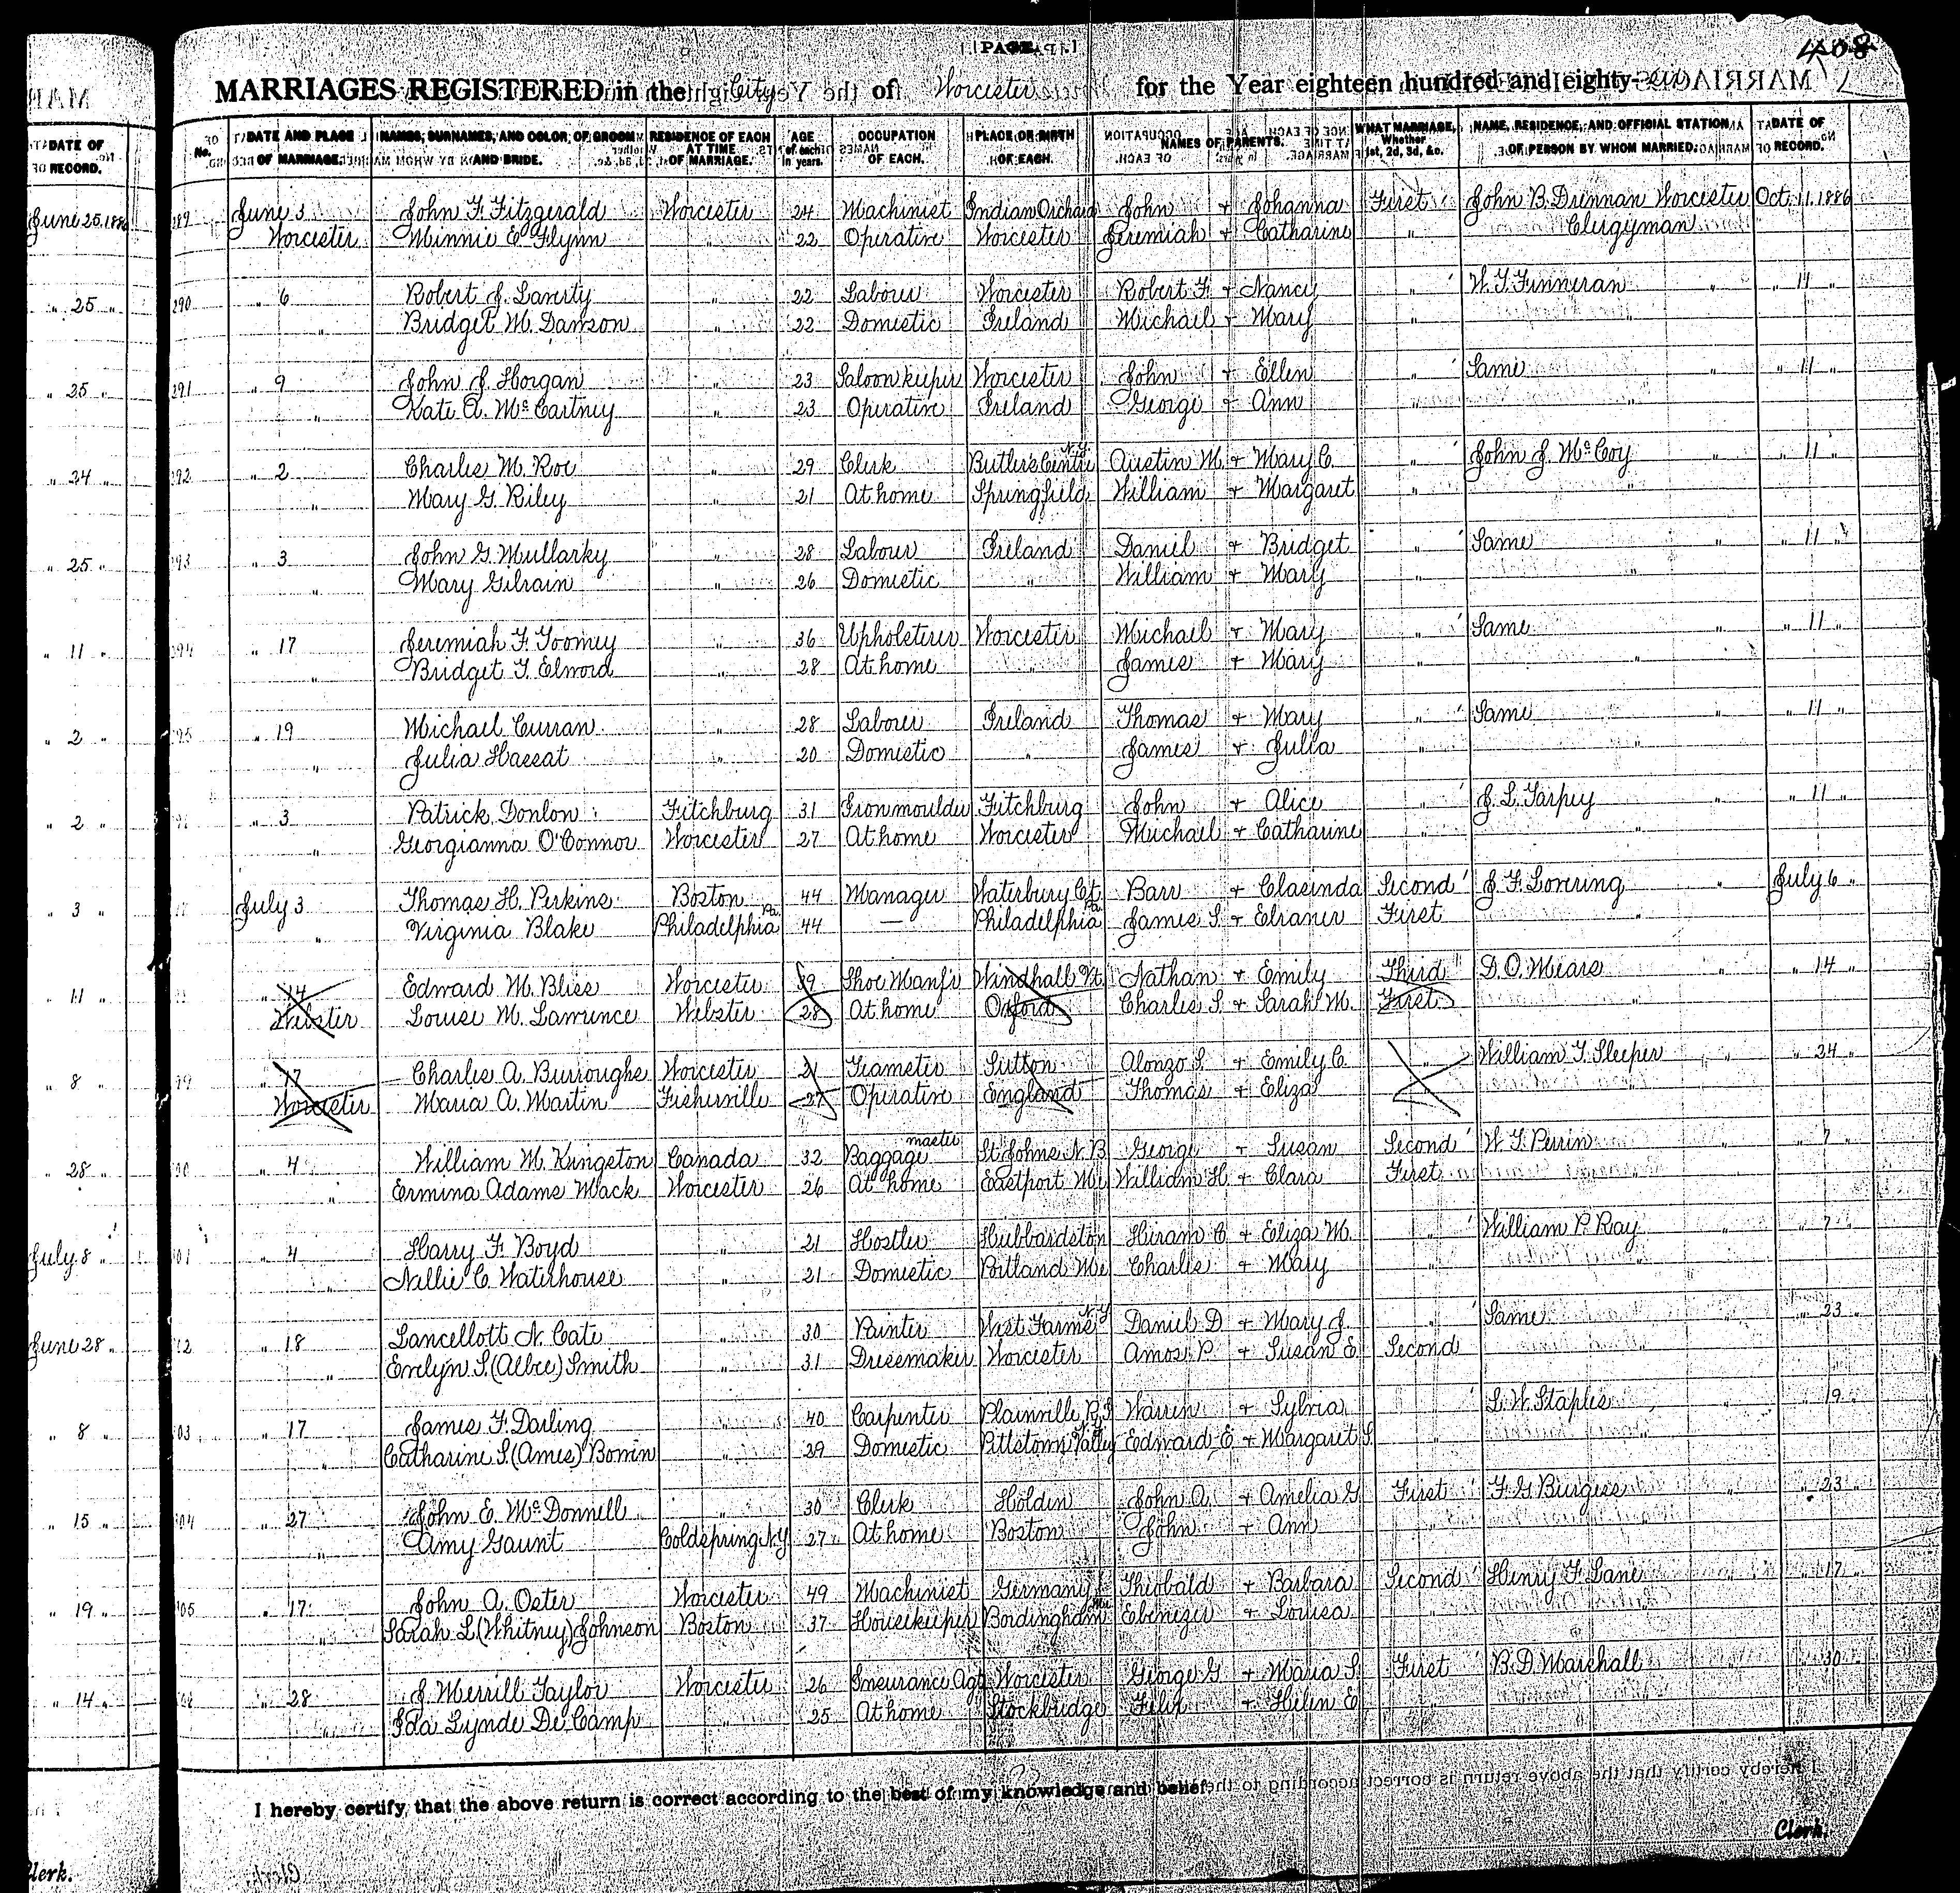 PAGE
408
MARRIAGES REGISTERED in the City of Worcester for the Year eighteen hundred and eighty-six
DATE OF RECORD.
No. DATE AND PLACE OF MARRIAGE. NAMES, SURNAMES, AND COLOR, OF GROOM AND BRIDE. RESIDENCE OF EACH AT TIME OF MARRIAGE. AGE of each in years. OCCUPATION OF EACH. PLACE OF BIRTH OF EACH. NAMES OF PARENTS. WHAT MARRIAGE, Whether 1st, 2d, 3d, &c. NAME, RESIDENCE, AND OFFICIAL STATION OF PERSON BY WHOM MARRIED. DATE OF RECORD.
June 25, 1886 289 June 3 John F. Fitzgerald Worcester 24 Machinist Indian Orchard John + Johanna First John B. Drennan Worcester Oct. 11. 1886
Worcester Minnie E. Flynn " 22 Operative Worcester Jeremiah + Catharine " Clergyman
" 25 " 290 " 6 Robert J. Laverty " 22 Laborer Worcester Robert F. + Nancy " W. T. Finneran " " 11 "
" Bridget M. Damson " 22 Domestic Ireland Michael + Mary " "
" 25 " 291 " 9 John J. Horgan " 23 Saloon keeper Worcester John + Ellen " Same " " 11 "
" Kate A. McCartney " 23 Operative Ireland George + Ann " "
" 24 " 292 " 2 Charles M. Roe " 29 Clerk Butlers Centre N.Y. Austin M. + Mary C. " John J. McCoy " " 11 "
" Mary G. Riley " 21 At home Springfield William + Margaret " "
" 25 " 293 " 3 John G. Mullarky " 28 Laborer Ireland Daniel + Bridget " Same " " 11 "
" Mary Gilrain " 26 Domestic " William + Mary " "
" 11 " 294 " 17 Jeremiah F. Toomey " 36 Upholsterer Worcester Michael + Mary " Same " " 11 "
" Bridget T. Elword " 28 At home " James + Mary " "
" 2 " 295 " 19 Michael Curran " 28 Laborer Ireland Thomas + Mary " Same " " 11 "
" Julia Hassat " 20 Domestic " James + Julia " "
" 2 " " 3 Patrick Donlon Fitchburg 31 Iron moulder Fitchburg John + Alice " J. L. Tarpey " " 11 "
" Georgianna O'Connor Worcester 27 At home Worcester Michael + Catharine " "
" 3 " July 3 Thomas H. Perkins Boston 44 Manager Waterbury Ct. Barr + Clasinda Second J. F. Lovering " July 6 "
" Virginia Blake Philadelphia Pa. 44 — Philadelphia Pa. James S. + Elraner First "
" 11 " " 14 Edward M. Bliss Worcester 39 Shoe Manfr Windhall Vt. Nathan + Emily Third D. O. Mears " " 14 "
Webster Louise M. Lawrence Webster 28 At home Oxford Charles S. + Sarah M. First "
" 8 " " 17 Charles A. Burroughs Worcester 21 Teamster Sutton Alonzo S. + Emily C. " William T. Sleeper " " 24 "
Worcester Maria A. Martin Fisherville 27 Operative England Thomas + Eliza
" 28 " " 4 William M. Kingston Canada 32 Baggage master St. Johns N.B. George + Susan Second W. T. Perrin " " 7 "
" Ermina Adams Mack Worcester 26 At home Eastport Me William H. + Clara First
July 8 " " 4 Harry F. Boyd " 21 Hostler Hubbardston Hiram C. + Eliza M. " William P. Ray " 7 "
" Nellie C. Waterhouse " 21 Domestic Portland Me Charles + Mary "
June 28 " " 18 Lancellott N. Cate " 30 Painter West Farms N.Y. Daniel D. + Mary J. " Same " 23 "
" Evelyn S. (Albee) Smith " 31 Dressmaker Worcester Amos P. + Susan E. Second
" 8 " " 17 James F. Darling " 40 Carpenter Plainville R.I. Warren + Sylvia " S. W. Staples " 19 "
" Catharine S. (Ames) Bonin " 29 Domestic Pittstown Valley Edward E. + Margaret S. "
" 15 " " 27 John E. McDonnell " 30 Clerk Holden John A. + Amelia G. First F. G. Burgess " 23 "
" Amy Gaunt Coldspring N.Y. 27 At home Boston John + Ann "
" 19 " " 17 John A. Oster Worcester 49 Machinist Germany Theobald + Barbara Second Henry F. Lane " 17 "
" Sarah L. (Whitney) Johnson Boston 37 Housekeeper Bordingham Me Ebenezer + Louisa "
" 14 " " 28 J. Merrill Taylor Worcester 26 Insurance Agt. Worcester George G. + Maria S. First B. D. Marshall " 30 "
" Ida Lynde De Camp " 25 At home Stockbridge Felix + Helen E. "
I hereby certify that the above return is correct according to the best of my knowledge and belief.
Clerk.
Clerk.